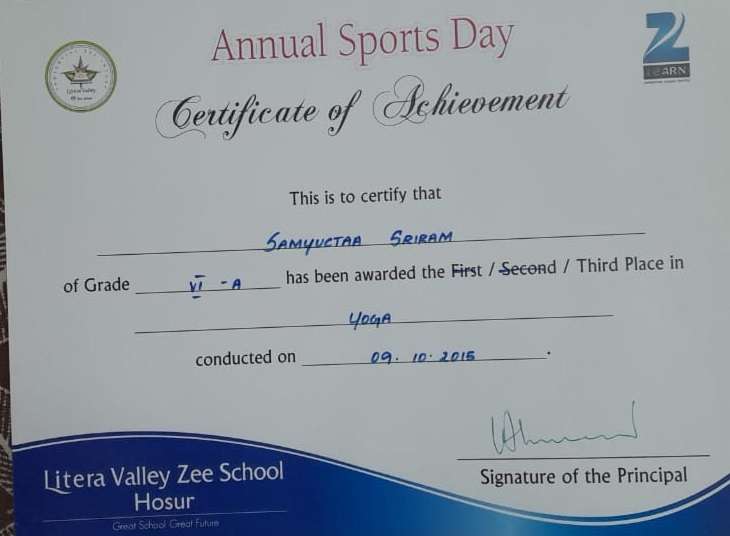 Annual Sports Day
Litera Valley
Z
LEARN
Certificate of Achievement
This is to certify that
SAMYUCTAA SRIRAM
of Grade VI - A has been awarded the First / Second / Third Place in
YOGA
conducted on 09. 10. 2015.
Signature of the Principal
Litera Valley Zee School
Hosur
Great School Great Future